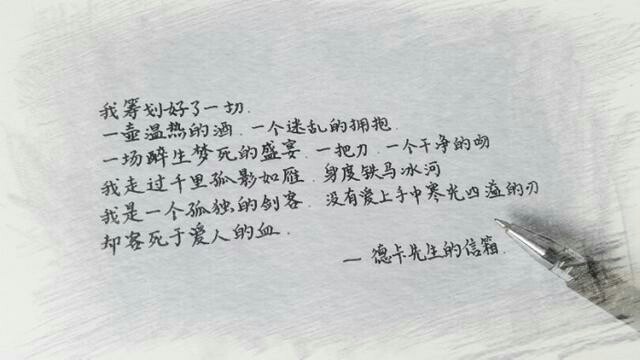 我筹划好了一切.
一壶温热的酒.一个迷乱的拥抱.
一场醉生梦死的盛宴.一把刀.一个干净的吻
我走过千里孤影如雁.身度铁马冰河
我是一个孤独的剑客.没有爱上手中寒光四溢的刃
却客死于爱人的血.
—德卡先生的信箱.